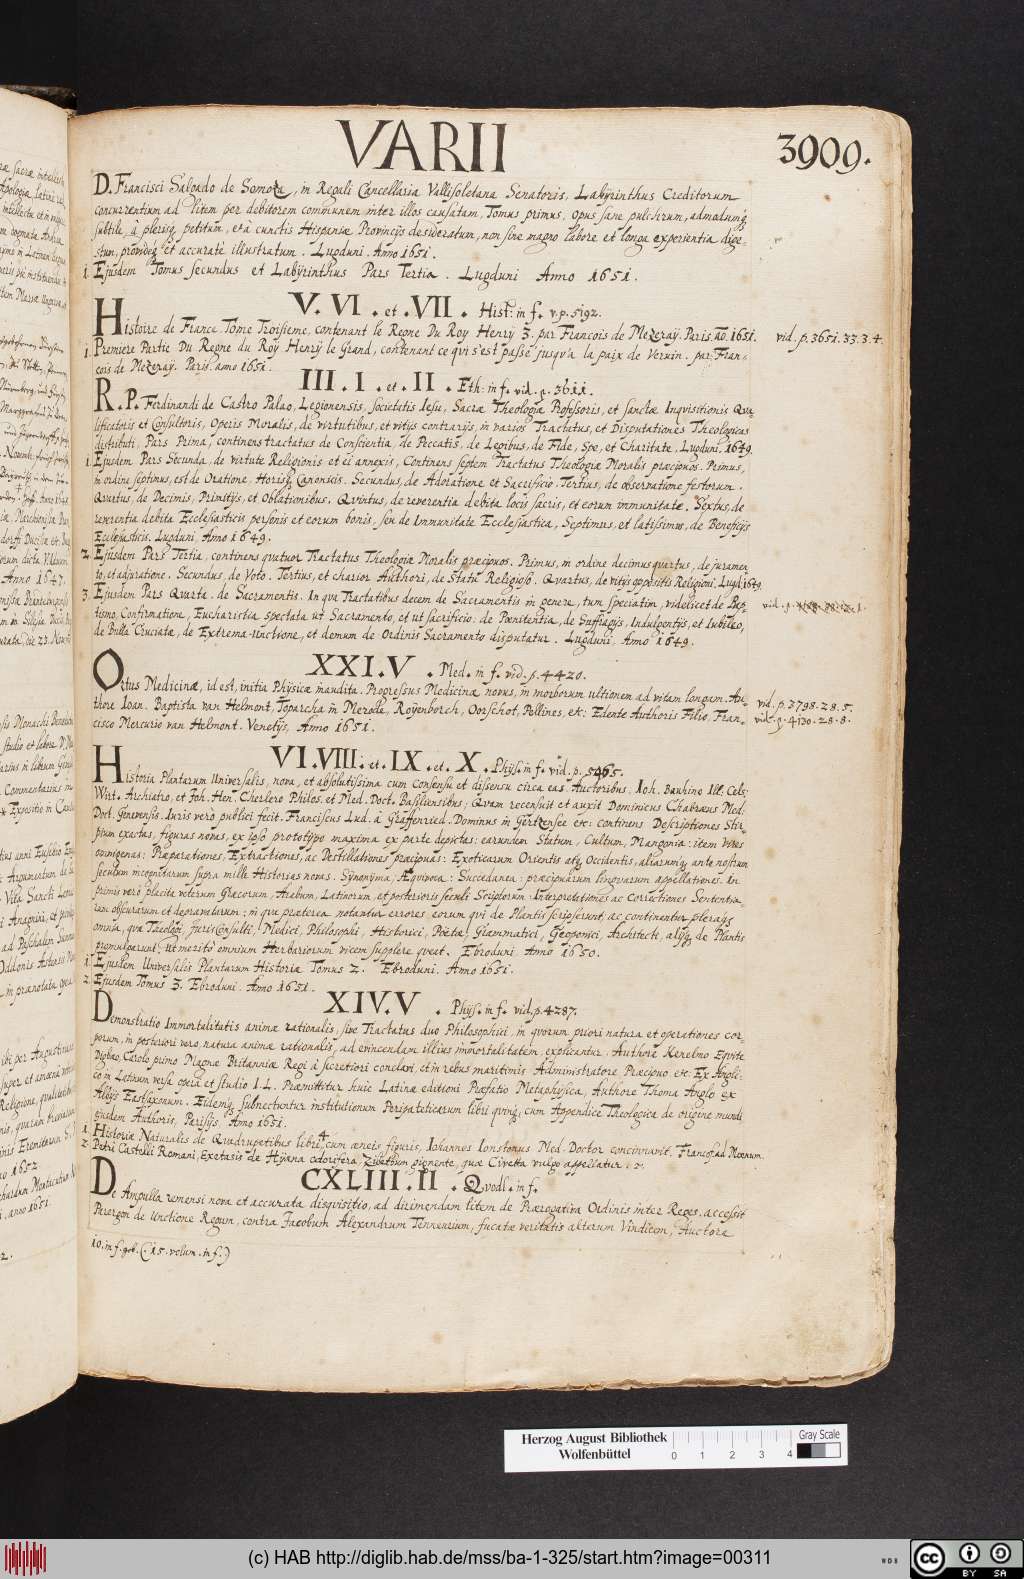 VARII
3909.
D. Francisci Salgado de Somoza, in Regali Cancellaria Vallisoletana Senatoris, Labyrinthus Creditorum
concurrentium ad litem per debitorem communem inter illos causatam, Tomus primus, opus sane pulchrum, admodumq;
subtile, à plerisq; petitum, et à cunctis Hispaniæ Provincijs desideratum, non sine magno labore et longa experientia dige-
stum, provideq; et accuratè illustratum. Lugduni. Anno 1651.
1. Ejusdem Tomus secundus et Labÿrinthus Pars Tertia. Lugduni Anno 1651.
V. VI. et. VII. Hist: in f. v. p. 5192.
Histoire de France Tome Troisieme, contenant le Regne Du Roy Henrÿ 3. par Francois de Mezeraÿ. Paris. ao. 1651. vid. p. 3651. 33. 3. 4.
1. Premiere Partie Du Regne du Roÿ Henrÿ le Grand, contenant ce qui s'est passé jusqu'a la paix de Vervin. par Fran-
cois de Mezeraÿ. Paris. anno 1651.
III. I. et. II. Eth: in f. vid. p. 3611.
R. P. Ferdinandi de Castro Palao, Legionensis, Societatis Iesu, Sacræ Theologiæ Professoris, et sanctæ Inqvisitionis Qva-
lificatoris et Consultoris, Operis Moralis, de virtutibus, et vitijs contrarijs, in varios Tractatus, et Disputationes Theologicas
distributi, Pars Prima, continens tractatus de Conscientia, de Peccatis, de Legibus, de Fide, Spe, et Charitate. Lugduni. 1649.
1. Ejusdem Pars Secunda, de virtute Religionis et ei annexis, Continens septem Tractatus Theologiæ Moralis præcipuos. Primus,
in ordine septimus, est de Oratione. Horisq; Canonicis. Secundus, de Adoratione et Sacrificio. Tertius, de observatione festorum.
Qvartus, de Decimis, Primitijs, et Oblationibus. Qvintus, de reverentia debita locis sacris, et eorum immunitate. Sextus, de
reverentia debita Ecclesiasticis personis et eorum bonis, seu de Immunitate Ecclesiastica, Septimus, et latissimus, de Beneficijs
Ecclesiasticis. Lugduni, Anno 1649.
2. Ejusdem Pars Tertia, continens qvatuor Tractatus Theologiæ Moralis præcipuos. Primus, in ordine decimus qvartus, de juramen
to, et adjuratione. Secundus, de Voto. Tertius, et charior Authori, de Statu Religioso. Qvartus, de vitijs oppositis Religioni. Lugd. 1649.
3. Ejusdem Pars Qvarta. de Sacramentis. In qva Tractatibus decem de Sacramentis in genere, tum speciatim, videlicet de Bap
tismo, Confirmatione, Eucharistia spectata ut Sacramento, et ut sacrificio: de Pœnitentia, de Suffragijs, Indulgentijs, et Iubileo,
de Bulla Cruciatæ, de Extrema-Unctione, et demum de Ordinis Sacramento disputatur. Lugduni, Anno 1649.
XXI. V. Med. in f. vid. p. 4420.
Ortus Medicinæ, id est, initia Physicæ inaudita. Progressus Medicinæ novus, in morborum ultionem ad vitam longam. Au-
thore Ioan. Baptista van Helmont, Toparcha in Merode, Roÿenborch, Oorschot, Pellines, etc: Edente Authoris Filio, Fran-
cisco Mercurio van Helmont. Venetijs, Anno 1651.
vid. p. 3798. 28. 5.
vid. p. 4130. 28. 8.
VI. VIII. et. IX. et. X. Phÿs. in f. vid. p. 5465.
Historia Plantarum Universalis, nova, et absolutissima cum consensu et dissensu circa eas. Auctoribus. Ioh. Bauhino Ill. Cels.
Wirt. Archiatro, et Joh. Hen. Cherlero Philos. et Med. Doct. Basiliensibus, Qvam recensuit et auxit Dominicus Chabræus Med.
Doct. Genevensis. Iuris vero publici fecit. Franciscus Lud. à Graffenried. Dominus in Gertzensee etc: continens Descriptiones Stir-
pium exactas, figuras novas, ex ipso prototypo maxima ex parte depictas: earundem Statum, Cultum, Mangonia: item Vires
omnigenas: Præparationes, Extractiones, ac Destillationes præcipuas: Exoticarum Orientis atq; Occidentis, aliarumq; ante nostrum
seculum incognitarum supra mille Historias novas. Sÿnonyma, Æqvivoca: Succedanea: præcipuarum lingvarum appellationes. In-
primis vero placita veterum Græcorum, Arabum, Latinorum, et posterioris seculi Sciptorum: Interpretationes ac Correctiones Sententia-
rum obscurarum et depravatarum: in qva præterea notantur errores eorum qvi de Plantis scripserunt, ac continentur pleraq;
omnia, qvæ Theologi, Jurisconsulti, Medici, Philosophi, Historici, Poëtæ, Grammatici, Geoponici, Architecti, alijq; de Plantis
promulgarunt: Ut merito omnium Herbariorum vicem supplere qveat. Ebroduni. Anno 1650.
1. Ejusdem Universalis Plantarum Historiæ Tomus 2. Ebroduni. Anno 1651.
2. Ejusdem Tomus 3. Ebroduni. Anno 1651.
XIV. V. Phÿs. in f. vid. p. 4287.
Demonstratio Immortalitatis animæ rationalis, sive Tractatus duo Philosophici, in qvorum priori natura et operationes cor-
porum, in posteriori vero, natura animæ rationalis, ad evincendam illius immortalitatem, explicantur. Authore Kenelmo Eqvite
Digbæo, Carolo primo Magnæ Britanniæ Regi à secretiori conclavi, et in rebus maritimis Administratore Præcipuo etc: Ex Angli-
co in Latinum versa opera et studio I. L. Præmittitur huic Latinæ editioni Præfatio Metaphÿsica, Authore Thoma Anglo ex
Albijs EastSaxonum. Eidemq; subnectuntur institutionum Peripateticarum libri qvinq; cum Appendice Theologica de origine mundi
ejusdem Authoris, Parisijs, Anno 1651.
1. Historiæ Naturalis de Quadrupetibus libri 4 cum æneis figuris, Iohannes Ionstonus Med. Doctor concinnavit. Francof. ad Moenum.
2. Petri Castelli Romani, Exetasis de Hÿæna odorifera, Zibethum gignente, quæ Civetta vulgo appellatur.
CXLIII. II. Qvodl. in f.
De Ampulla remensi nova et accurata disqvisitio, ad dirimendam litem de Prærogativa Ordinis inter Reges. accessit
Parergon de Unctione Regum, contra Jacobum Alexandrum Tennerium, fucatæ veritatis alterum Vindicem, Auctore
10. in f. geb. (15. volum. in f.)
Herzog August Bibliothek
Wolfenbüttel
0 1 2 3 4
Gray Scale
(c) HAB http://diglib.hab.de/mss/ba-1-325/start.htm?image=00311
WDB
cc BY SA